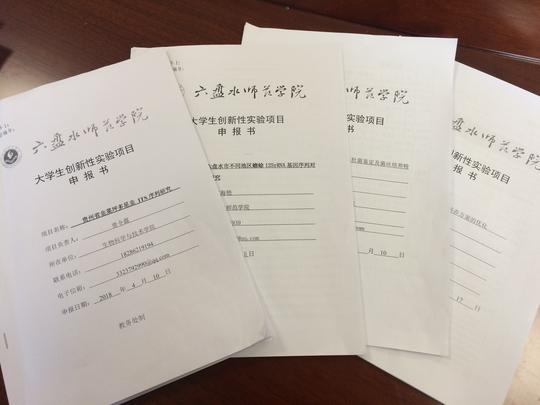 六盘水师范学院
大学生创新性实验项目
申报书
项目名称：贵州省韭菜坪多星韭 ITS 序列研究
项目负责人：
所在单位：生物科学与技术学院
联系电话：18286219194
电子信箱：3323792990@qq.com
申报日期：2018 年 4 月 10 日
教务处制
六盘水师范学院
大学生创新性实验项目
申报书
六盘水市不同地区蟾蜍 12SrRNA 基因序列对
研究
师范学院
六盘水师范学院
大学生创新性实验项目
申报书
月 10 日
六盘水师范学院
大学生创新性实验项目
申报书
方案的优化
17 日